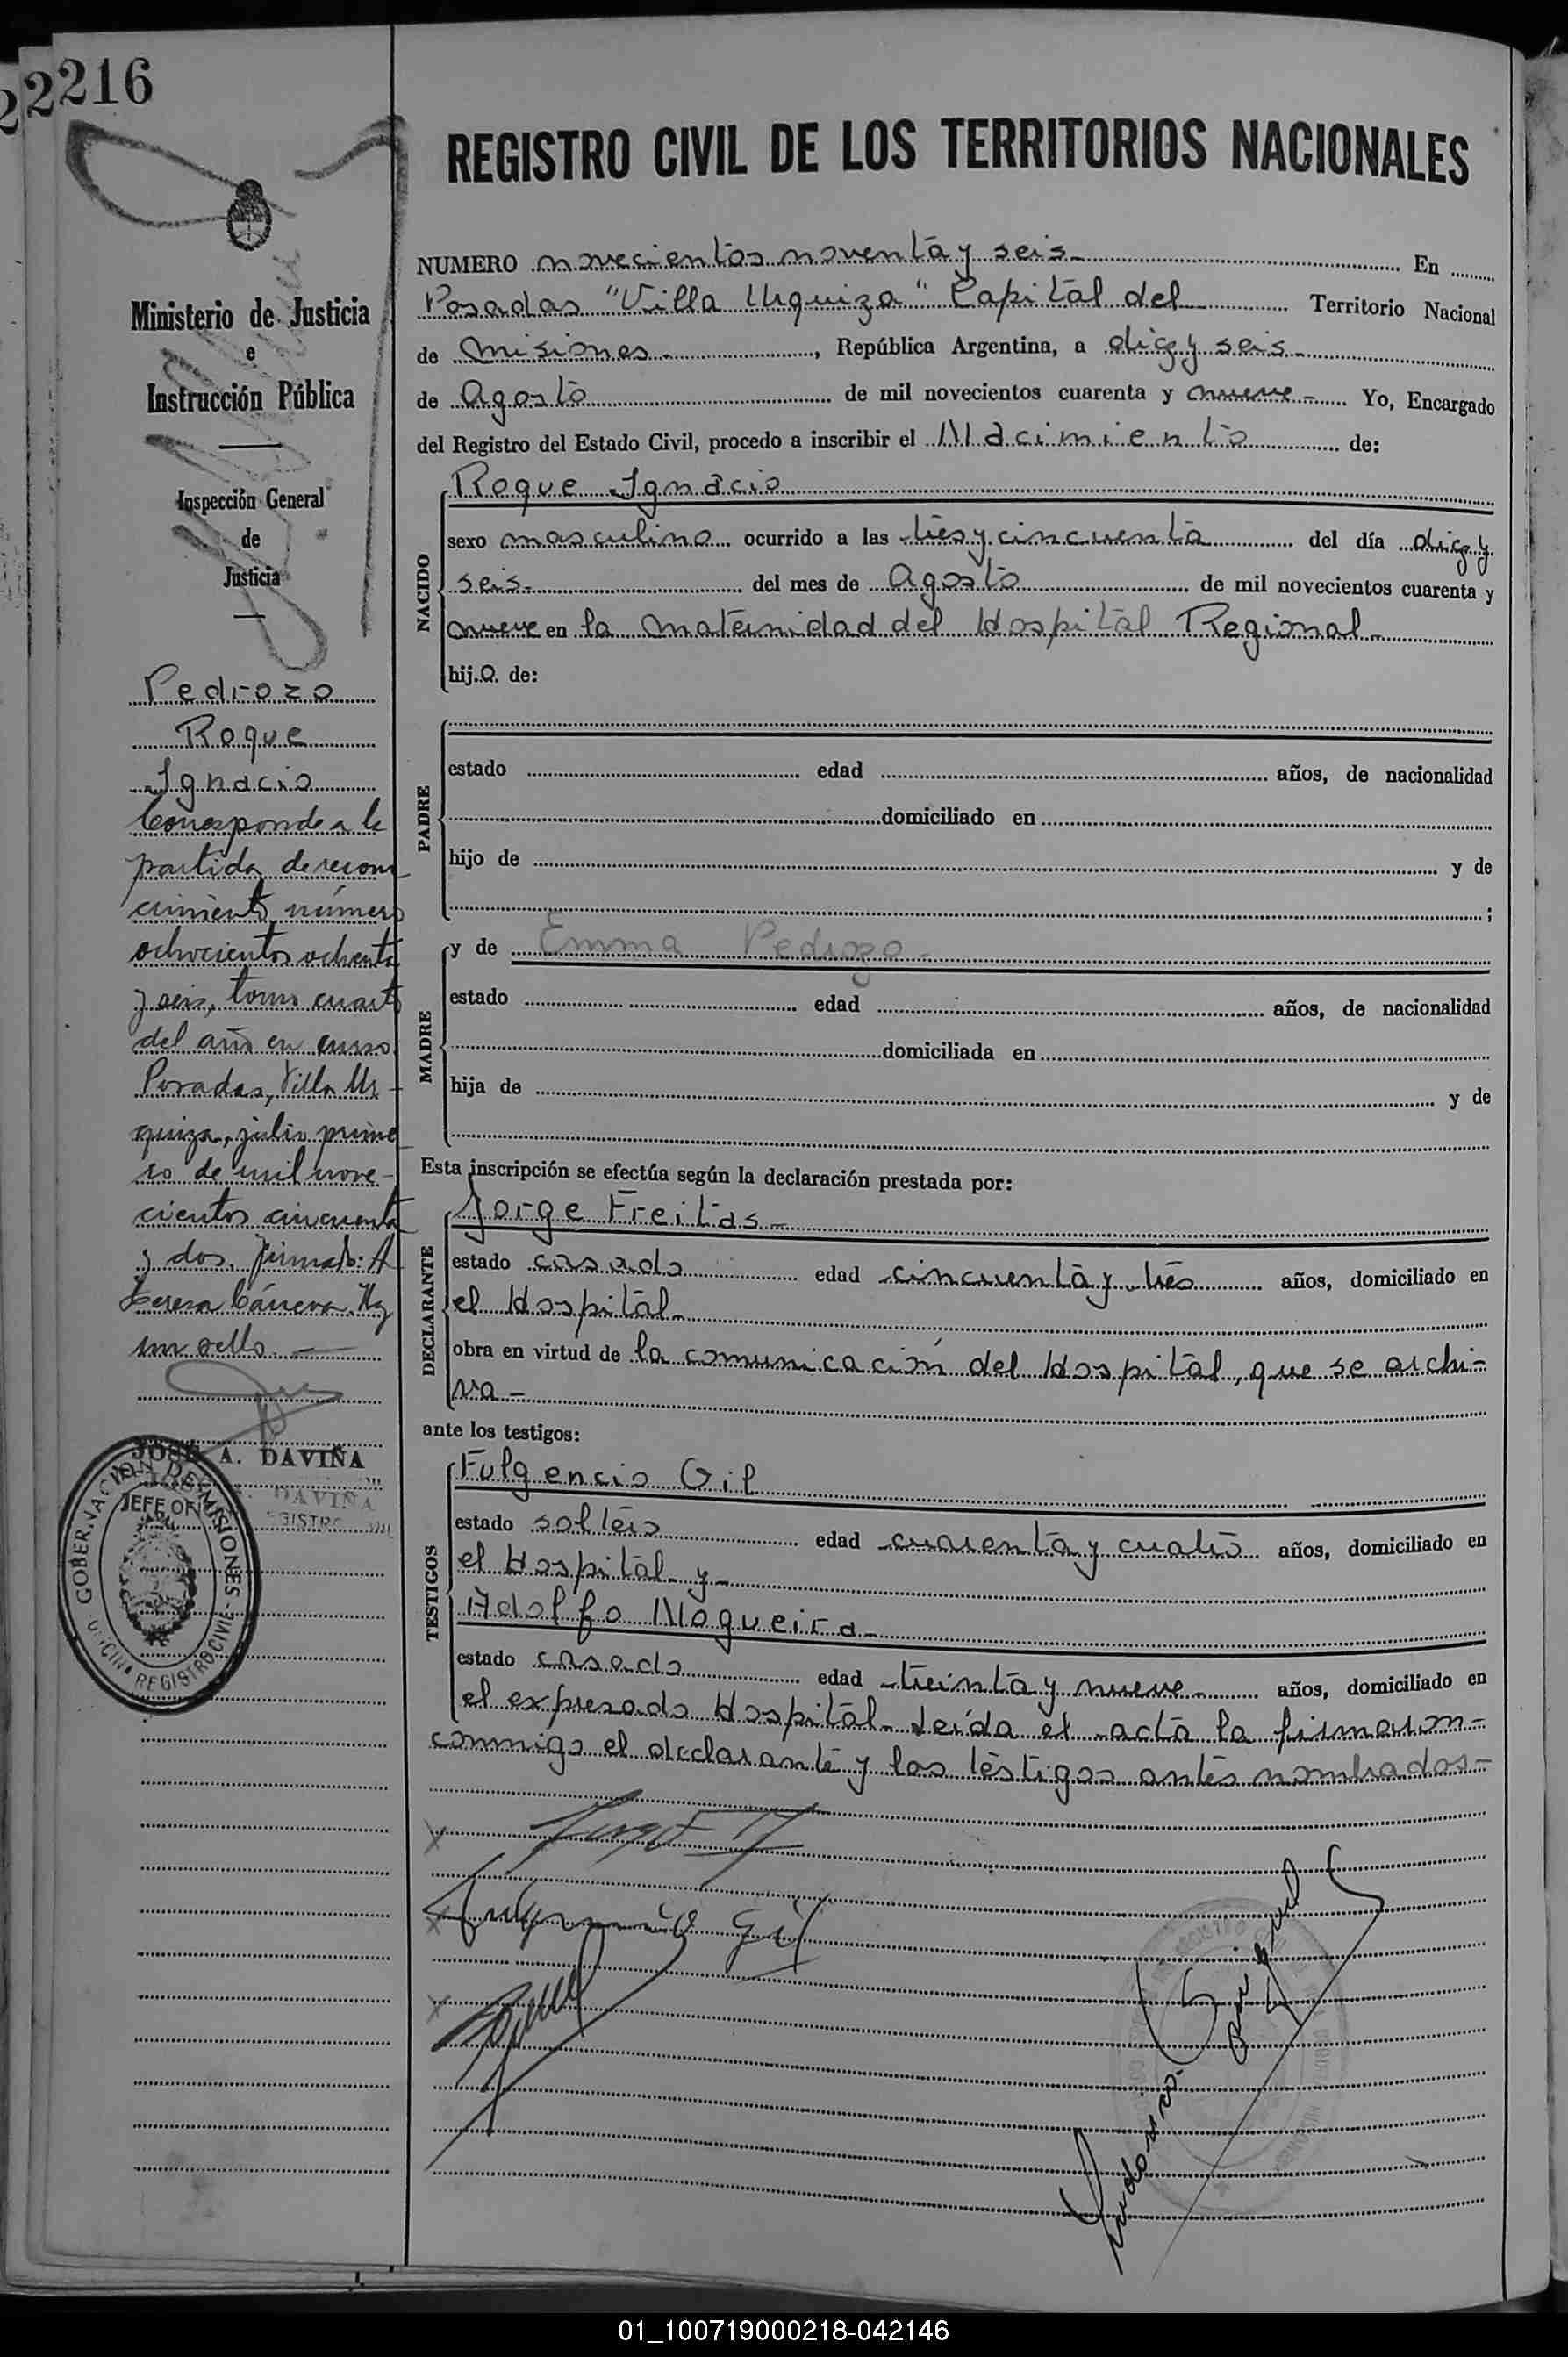 2216
REGISTRO CIVIL DE LOS TERRITORIOS NACIONALES
Ministerio de Justicia
e
Instrucción Pública
Inspección General
de
Justicia
Pedrozo
Roque
Ignacio
Corresponde a la
partida de recono
cimiento número
ochocientos ochenta
y seis, tomo cuarto
del año en curso.
Posadas, Villa Ur-
quiza, julio prime
ro de mil nove-
cientos cincuenta
y dos. Firmado: A
Teresa Hay
un sello. —
JOSÉ A. DAVIÑA
JEFE OFI
GOBERNACION DE MISIONES -
OFICINA REGISTRO CIVIL
NUMERO novecientos noventa y seis - En
Posadas "Villa Urquiza" Capital del Territorio Nacional
de Misiones - , República Argentina, a diez y seis -
de Agosto de mil novecientos cuarenta y nueve - Yo, Encargado
del Registro del Estado Civil, procedo a inscribir el Nacimiento de:
NACIDO
Roque Ignacio
sexo masculino ocurrido a las tres y cincuenta del día diez y
seis - del mes de Agosto de mil novecientos cuarenta y
nueve en la Maternidad del Hospital Regional -
hij.o. de:
PADRE
estado edad años, de nacionalidad
domiciliado en
hijo de y de
;
MADRE
y de Emma Pedrozo -
estado edad años, de nacionalidad
domiciliada en
hija de y de
Esta inscripción se efectúa según la declaración prestada por:
DECLARANTE
Jorge Freitas -
estado casado edad cincuenta y tres años, domiciliado en
el Hospital -
obra en virtud de la comunicación del Hospital, que se archi-
va -
ante los testigos:
TESTIGOS
Fulgencio Gil
estado soltero edad cuarenta y cuatro años, domiciliado en
el Hospital - y -
Adolfo Nogueira -
estado casado edad treinta y nueve - años, domiciliado en
el expresado Hospital - Leída el acta la firmaron -
conmigo el declarante y los testigos antes nombrados -
Fulgencio Gil
01_100719000218-042146